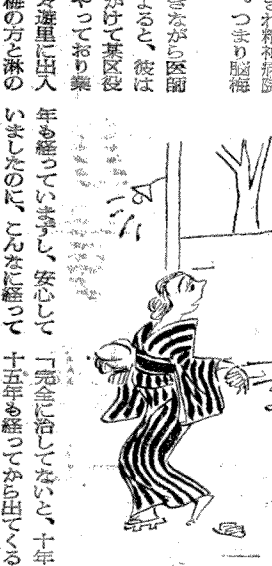 され精神病院
。つまり脳梅
きながら医師
よると、彼は
がけて某区役
やっており業
々遊里に出入
梅の方と淋の
年も経っていますし、安心して
いましたのに、こんなに経って
「完全に治してないと、十年
十五年も経ってから出てくる